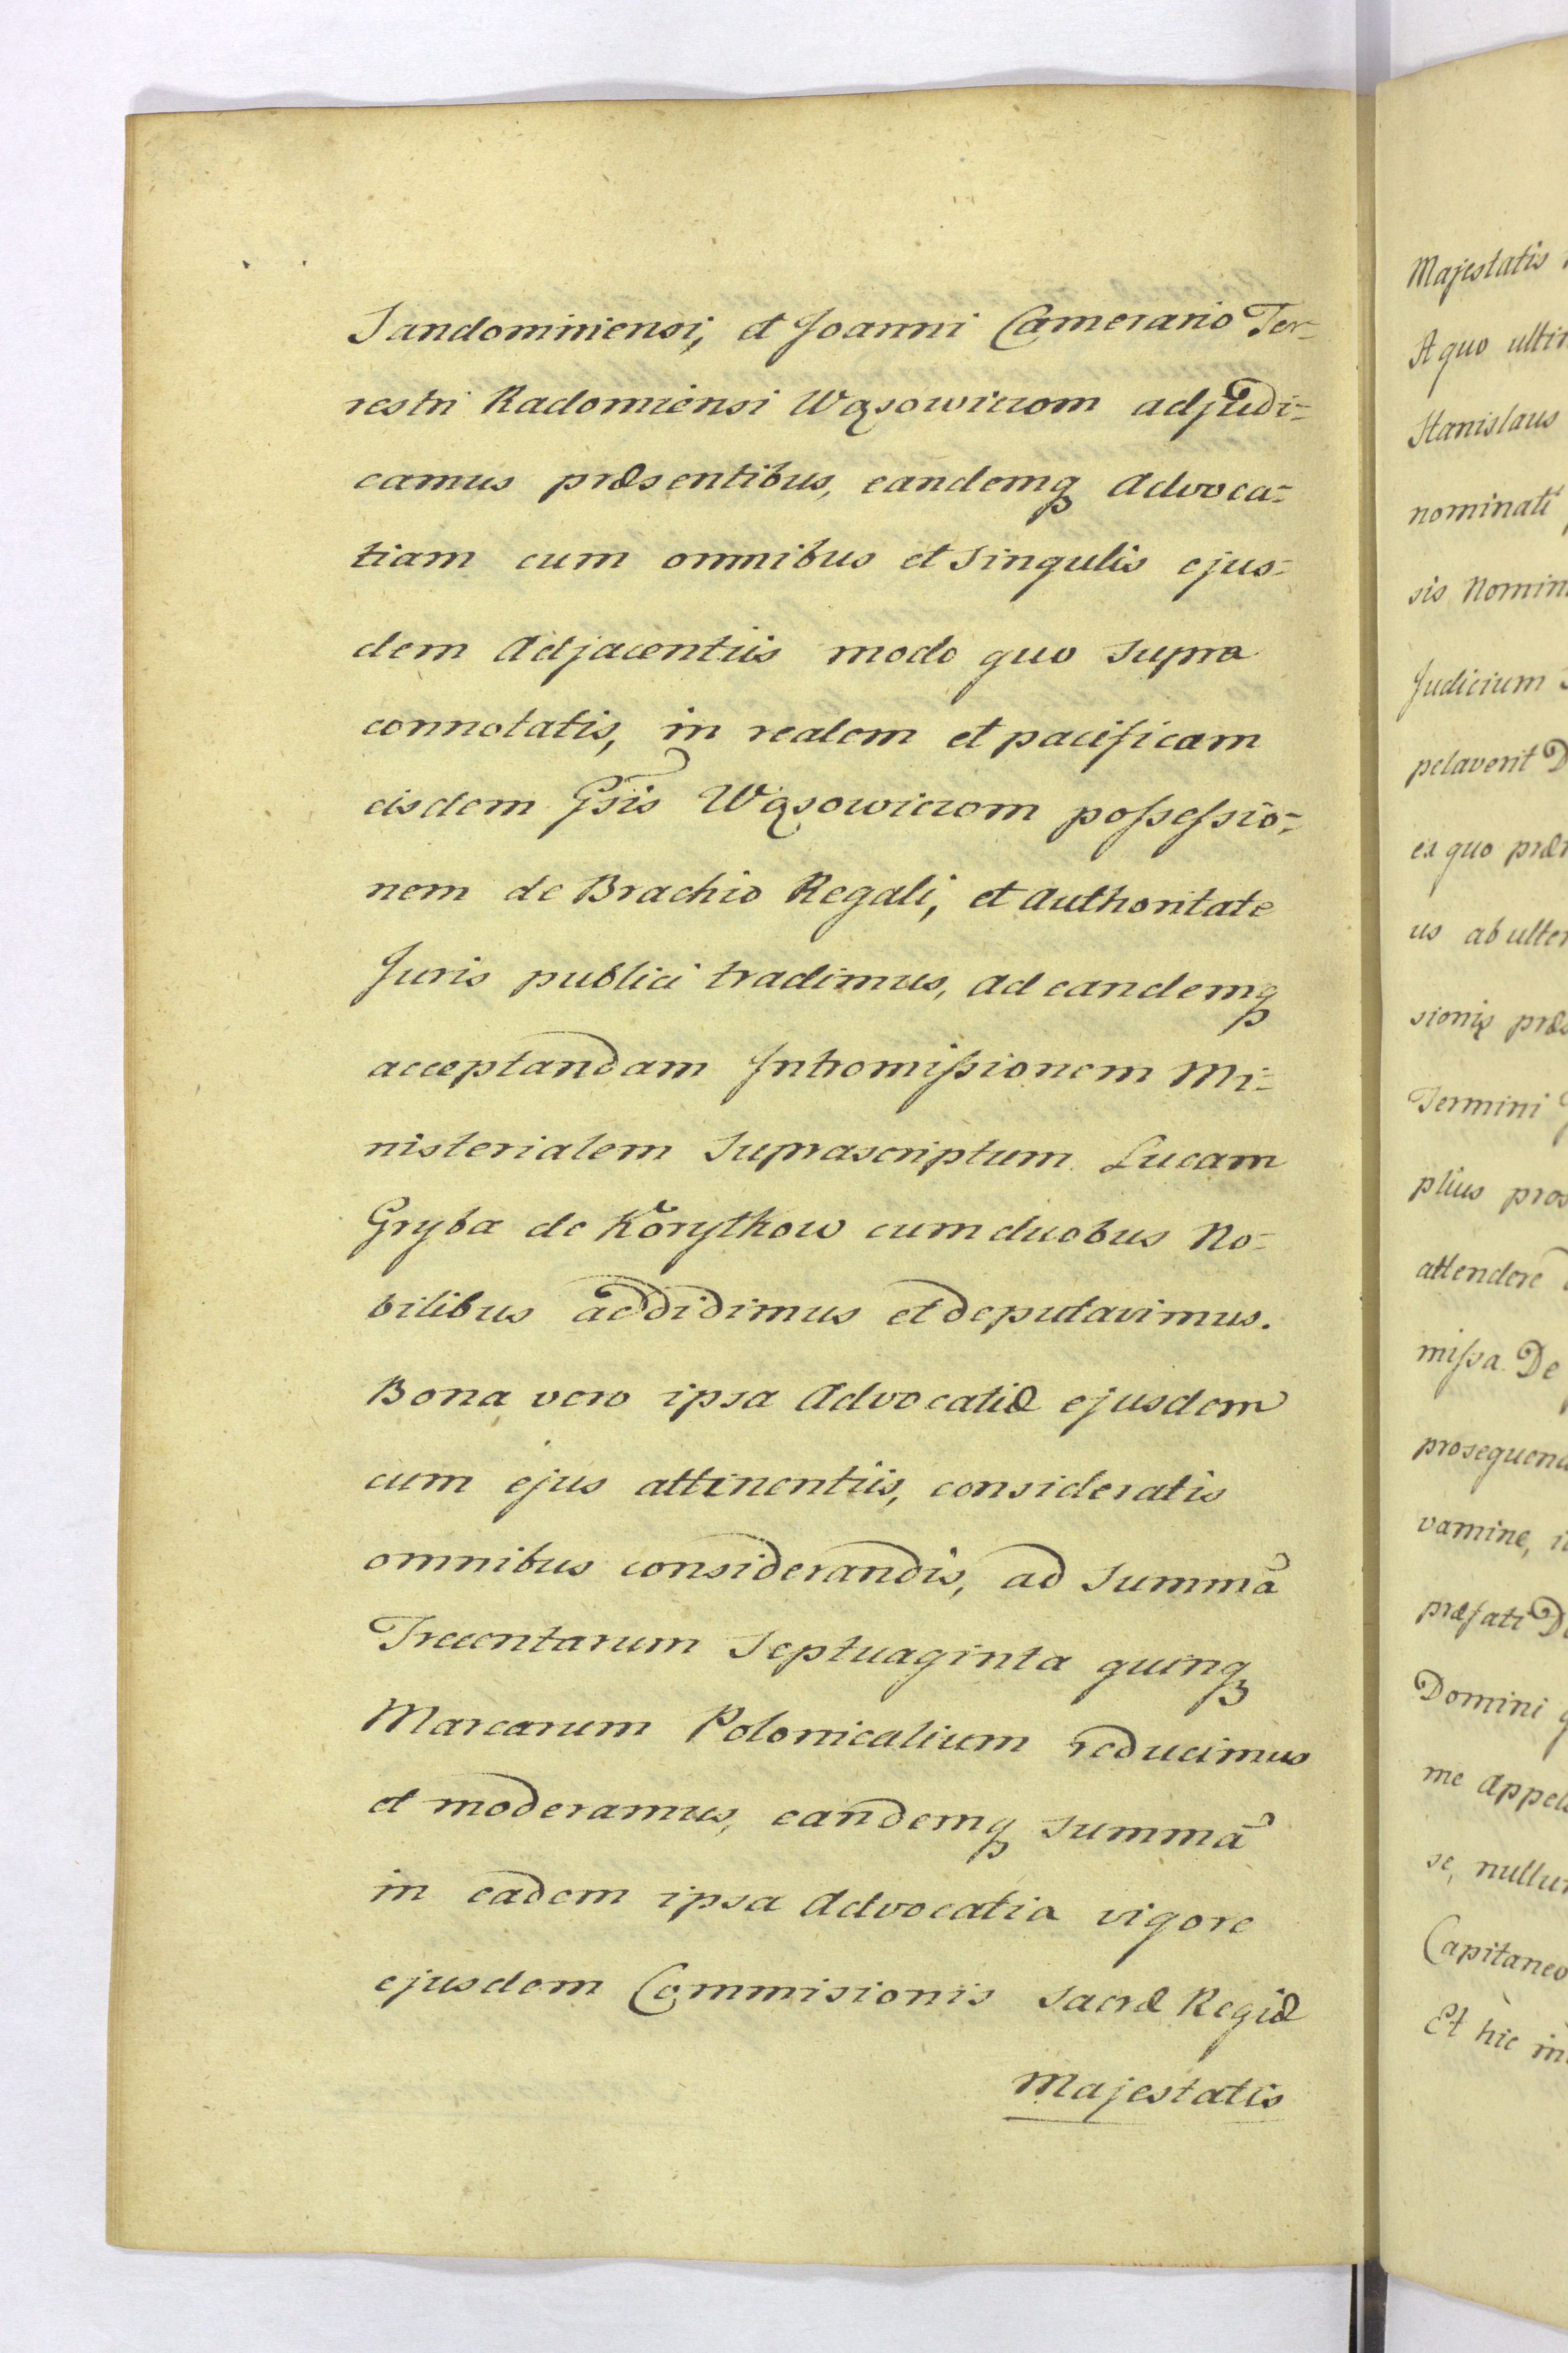 Sandominiensi, et Joanni Camerario Ter-
restri Radomiensi Wąsowiczom adjudi=
camus præsentibus, eandemq Advoca=
tiam cum omnibus et Singulis ejus=
dem Adjacentiis modo quo supra
connotatis, in realem et pacificam
eisdem Gsis Wąsowiczom possessio=
nem de Brachio Regali, et Authoritate
Juris publici tradimus, ad eandemq
acceptandam Intromissionem Mi=
nisterialem Suprascriptum Lucam
Gryba de Korythow cum duobus No=
bilibus addidimus et deputavimus.
Bona vero ipsa Advocatiæ ejusdem
cum ejus attinentiis, consideratis
omnibus considerandis, ad Summã
Trecentarum Septuaginta quinq
Marcarum Polonicalium reducimus
et moderamus, eandemq Summã
in eadem ipsa Advocatia vigore
ejusdem Commisionis Sacræ Regiæ
Majestatis
Majestatis
A quo
Stanislaus
nominati
sis
Judicium
pelaverit
ex quo
us ab
sionis
Termini
plius
attendere
missa De
vamine,
præfati
Domini
me
se,
Capitaneo
Et hic